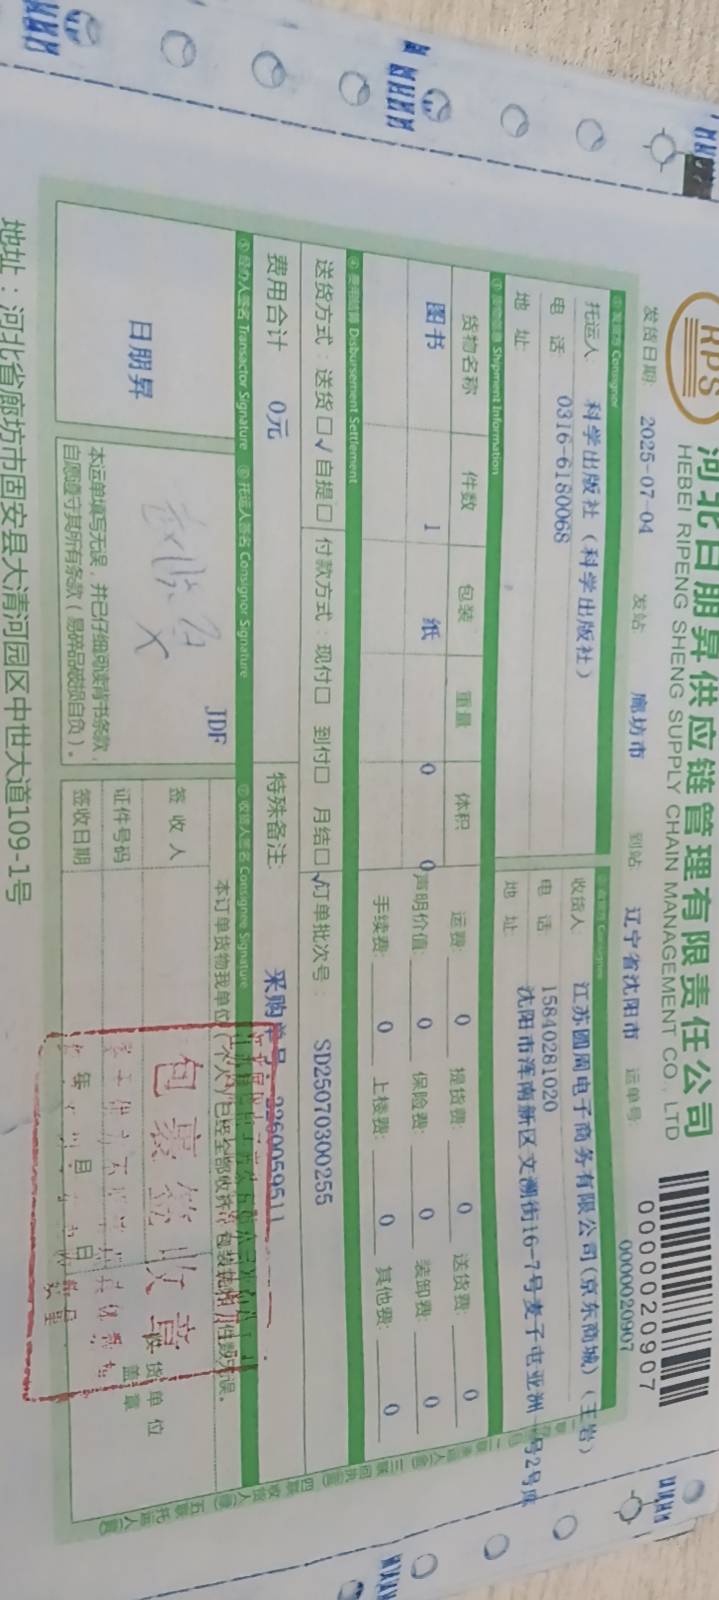 RPS
河北日朋昇供应链管理有限责任公司
HEBEI RIPENG SHENG SUPPLY CHAIN MANAGEMENT CO., LTD
0000020907
发货日期: 2025-07-04 发站 廊坊市 到站 辽宁省沈阳市 运单号 0000020907
① 发货信 Consignor
托运人 科学出版社（科学出版社）
电 话 0316-6180068
地 址
收货人 江苏圆周电子商务有限公司(京东商城)（王岩）
电 话 15840281020
地 址 沈阳市浑南新区文溯街16-7号麦子屯亚洲一号2号库
③ 货物信息 Shipment Information
货物名称 件数 包装 重量 体积
图书 1 纸 0 0
运费: 0 提货费: 0 送货费: 0
声明价值: 0 保险费: 0 装卸费: 0
手续费: 0 上楼费: 0 其他费: 0
④ 费用结算 Disbursement Settlement
送货方式：送货□√ 自提□ 付款方式：现付□ 到付□ 月结□√ 订单批次号： SD25070300255
费用合计 0元 特殊备注 采购单号 3260059511
⑤ 经办人签名 Transactor Signature
日朋昇
⑥ 托运人签名 Consignor Signature
JDF
本运单填写无误，并已仔细阅读背书条款，
自愿遵守其所有条款（易碎品破损自负）。
⑦ 收货人签名 Consignee Signature
本订单货物我单位（个人）已经全部收到，包装完好，件数无误。
签 收 人
证件号码
签收日期 年 月 日
收货单位
盖 章
包裹签收章
地址：河北省廊坊市固安县大清河园区中世大道109-1号